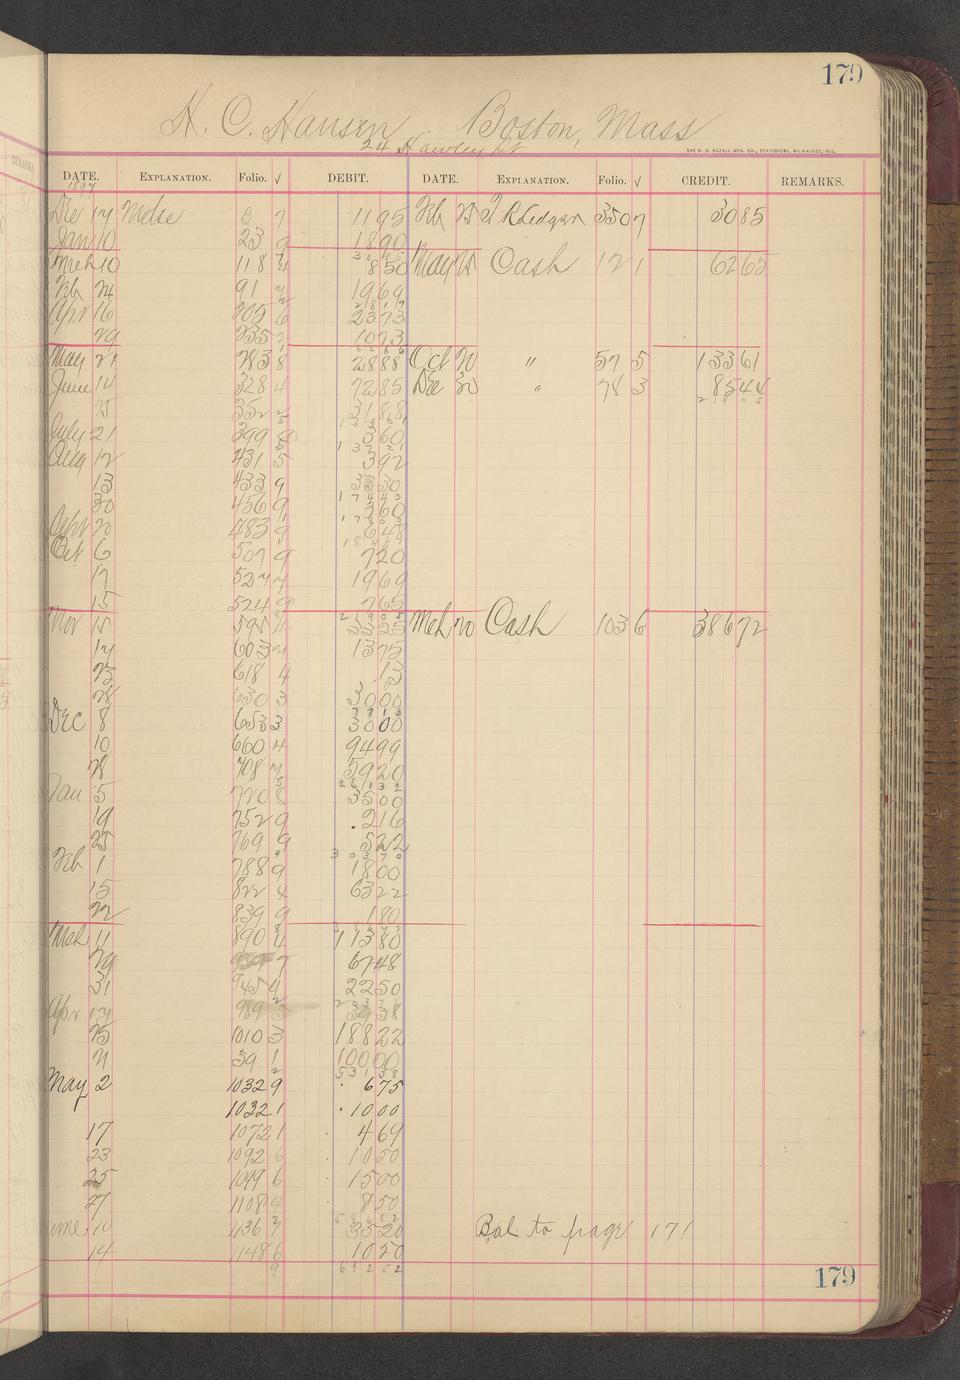 179
H. C. Hansen Boston, Mass
24 Hawley St
THE H. G. RAZALL MFG. CO., STATIONERS, MILWAUKEE, WIS.
DATE. EXPLANATION. Folio. √ DEBIT. DATE. EXPLANATION. Folio. √ CREDIT. REMARKS.
1897
Dec 17 Mdse 8 7 1195 Feb 25 350 7 3085
Jan 10 23 9 1890
Mch 10 118 4 850 May 25 Cash 12 1 6265
Feb 24 91 1969
Apr 16 205 6 2373
29 235 1073
May 21 283 8 2888 Oct 20 " 57 5 13361
June 14 328 4 7285 Dec 30 " 78 3 8544
25 352 3188
July 21 399 9 560
Aug 12 431 5 392
13 433 9 330
30 456 9 260
Sept 20 483 9 648
Oct 6 507 9 720
17 527 7 1969
15 524 9 765
Nov 15 595 4 3225 Mch 20 Cash 103 6 38672
17 603 7 1375
25 618 4 .13
28 630 3 3000
Dec 8 653 3 3000
10 660 4 9499
28 708 7 5920
Jan 5 720 8 3500
19 752 9 .216
25 769 9 522
Feb 1 788 9 1800
15 822 4 6322
22 839 9 180
Mch 11 890 4 11380
29 7 6748
31 945 9 2250
Apr 17 989 3 3938
25 1010 3 18822
21 59 1 10000
May 2 1032 9 675
1022 1 1000
17 1072 1 469
23 1092 6 1050
25 1099 6 1500
27 1108 4 850
June 10 1136 7 3320 Bal to page 171
14 1148 6 1020
9 6 9 2 5 2
179